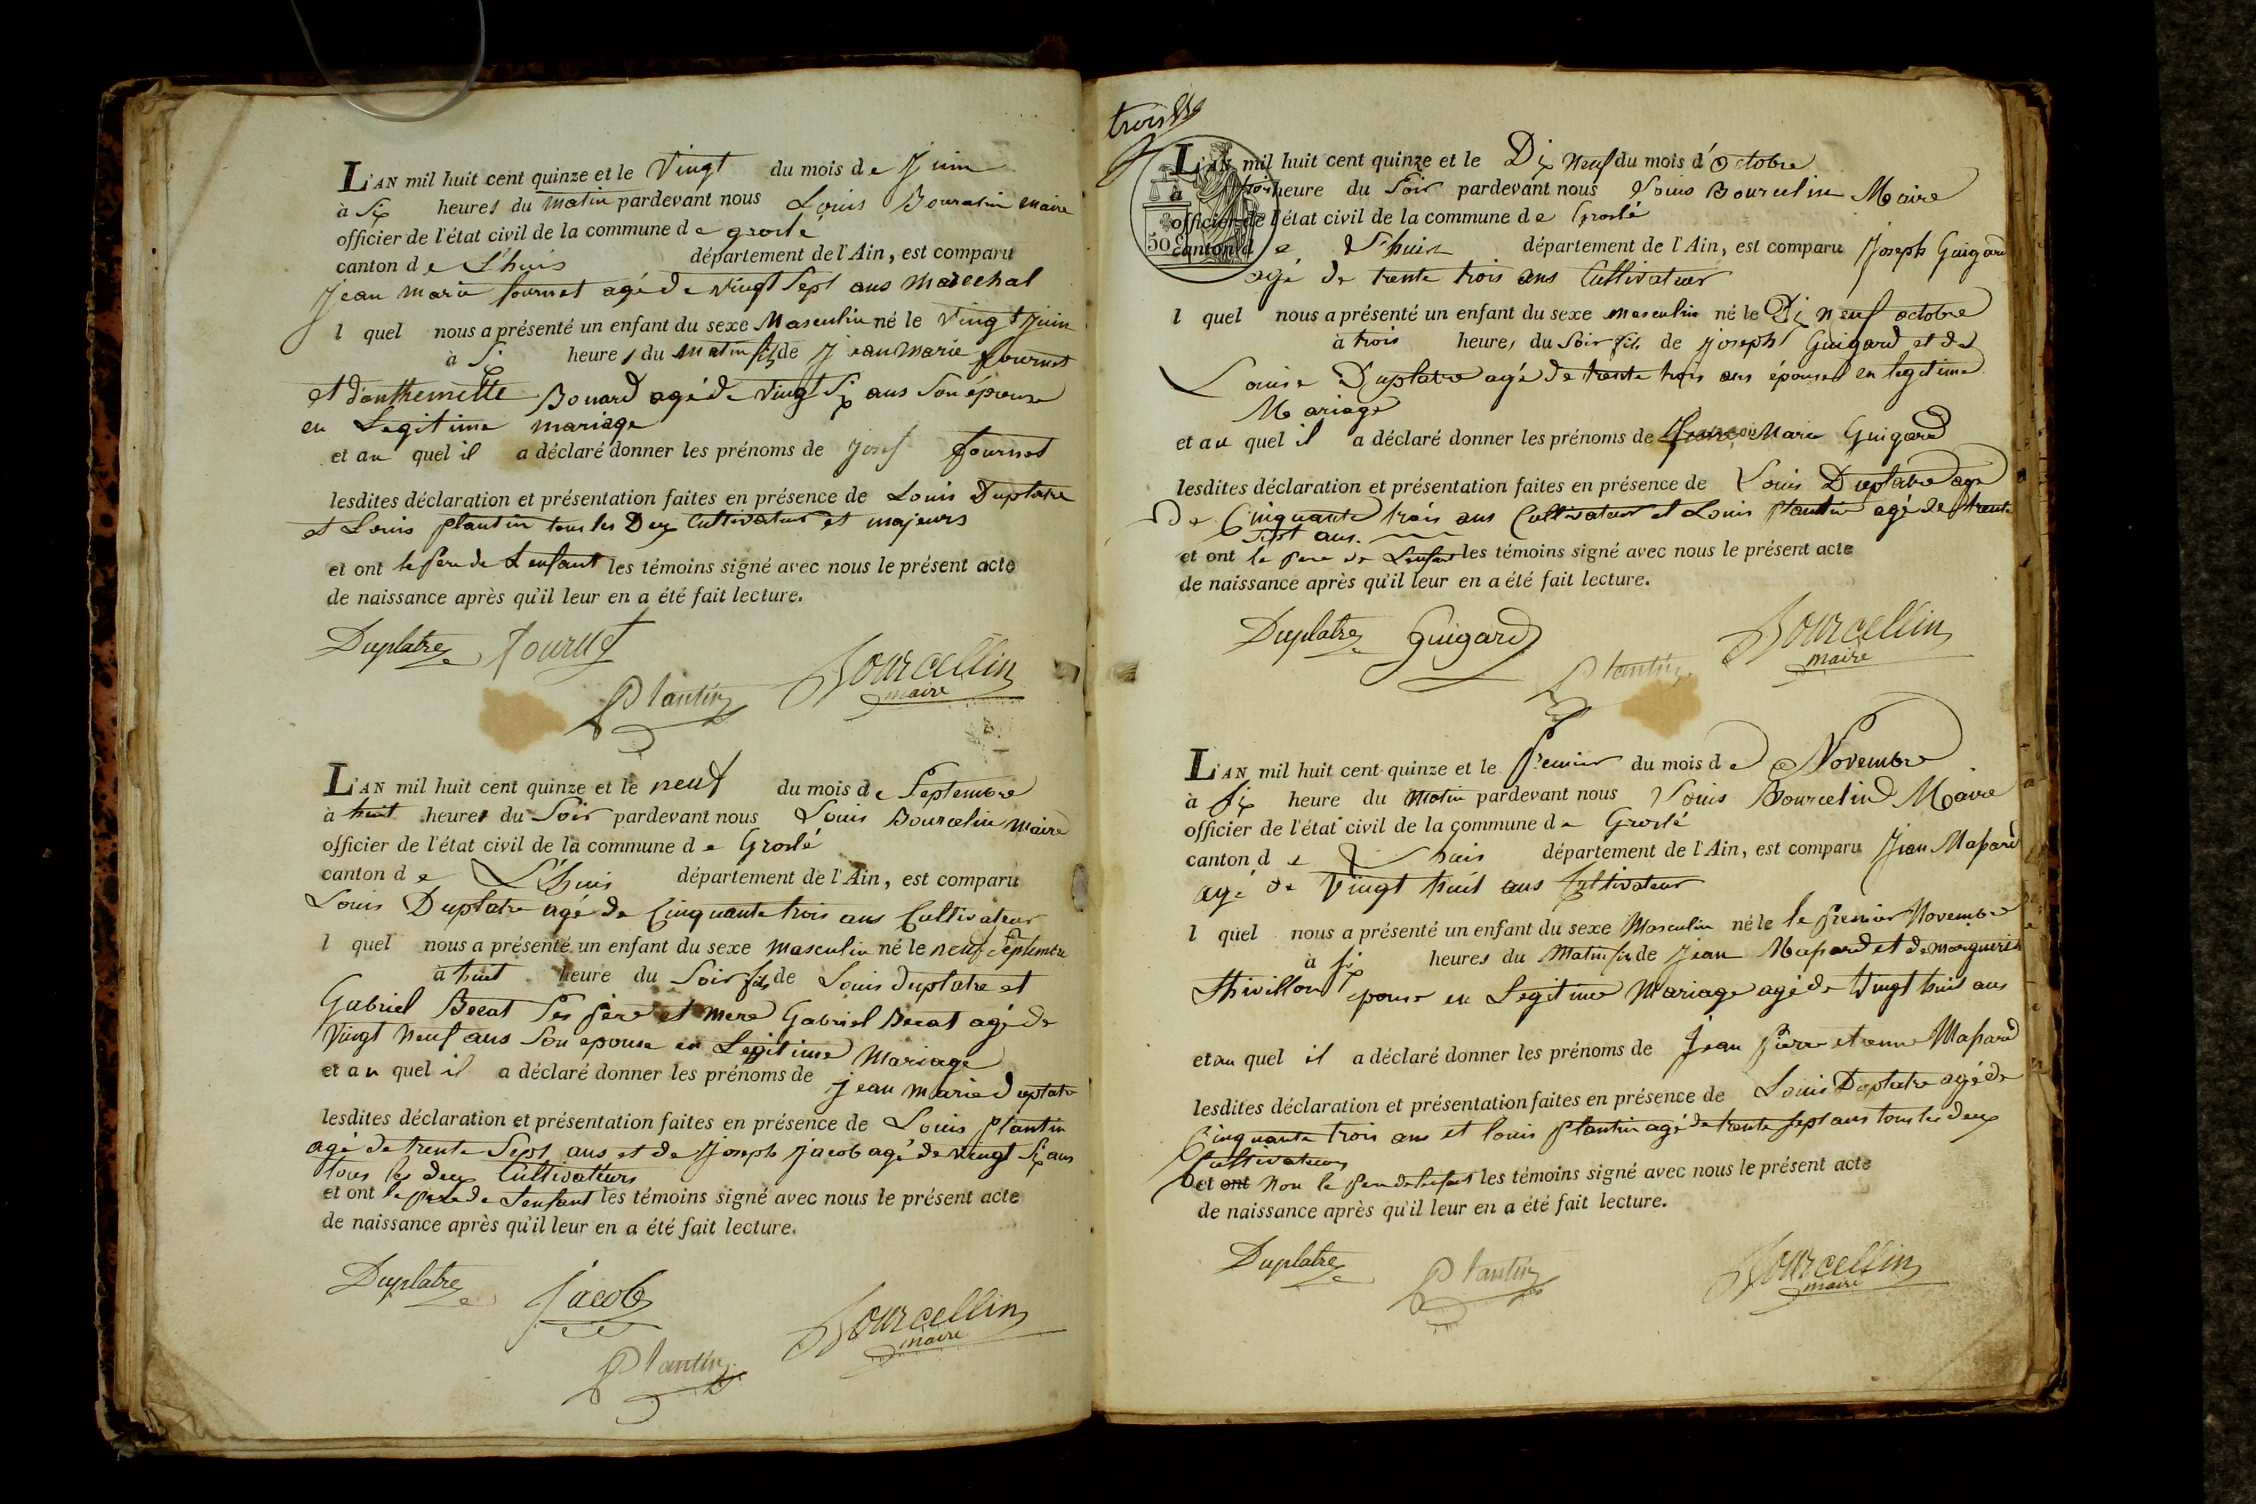 L'AN mil huit cent quinze et le Vingt du mois de Juin
à Six heures du matin pardevant nous Louis Bourcelin maire
officier de l'état civil de la commune de groslé
canton de L'huis département de l'Ain, est comparu
Jean marie fournet agé de vingt Sept ans Marechal
l quel nous a présenté un enfant du sexe Masculin né le vingt Juin
à Six heures du matin fils de Jean Marie fournet
et d'anthemette Bonard agé de vingt Six ans Son épouse
en Legitime mariage
et au quel il a déclaré donner les prénoms de Josef fournet
lesdites déclaration et présentation faites en présence de Louis Duplatre
et Louis plantin tous les Deux Cultivateur et majeurs
et ont le pere de L'enfant les témoins signé avec nous le présent acte
de naissance après qu'il leur en a été fait lecture.
Duplatre fournet
Plantin Bourcellin
maire
L'AN mil huit cent quinze et le neuf du mois de Septembre
à huit heures du Soir pardevant nous Louis Bourcelin maire
officier de l'état civil de la commune de Groslé
canton de L'huis département de l'Ain, est comparu
Louis Duplatre agé de Cinquante trois ans Cultivateur
l quel nous a présenté un enfant du sexe masculin né le neuf Septembre
à huit heure du Soir fils de Louis duplatre et
Gabriel Becat Ses père et mere Gabriel Becat agé de
vingt neuf ans Son epouse en Legitime Mariage
et au quel il a déclaré donner les prénoms de
jean marie duplatre
lesdites déclaration et présentation faites en présence de Louis plantin
agé de trente Sept ans et de Joseph Jacob agé de vingt Six ans
tous les deux Cultivatteurs
et ont le pere de L'enfant les témoins signé avec nous le présent acte
de naissance après qu'il leur en a été fait lecture.
Duplatre Jacob
Plantin Bourcellin
maire
trois
50 c
L'AN mil huit cent quinze et le Dix Neuf du mois d'Octobre
à trois heure du Soir pardevant nous Louis Bourcelin Maire
officier de l'état civil de la commune de Groslé
canton de L'huis département de l'Ain, est comparu Joseph Guigard
agé de trente trois ans Cultivateur
l quel nous a présenté un enfant du sexe masculin né le Dix neuf octobre
à trois heures du Soir fils de joseph Guigard et de
Louise Duplatre agé de trente trois ans épouse en legitime
Mariage
et au quel il a déclaré donner les prénoms de Marie Guigard
lesdites déclaration et présentation faites en présence de Louis Duplatre agé
de Cinquante trois ans Cultivateur et Louis plantin agé de trente
Sept ans.
et ont le pere de L'enfant les témoins signé avec nous le présent acte
de naissance après qu'il leur en a été fait lecture.
Duplatre Guigard
Plantin Bourcellin
maire
L'AN mil huit cent quinze et le Premier du mois de Novembre
à Six heure du Matin pardevant nous Louis Bourcelin Maire
officier de l'état civil de la commune de Groslé
canton de L'huis département de l'Ain, est comparu Jean Mapard
agé de vingt huit ans Cultivateur
l quel nous a présenté un enfant du sexe Masculin né le le premier Novembre
à Six heures du Matin fils de Jean Mapard et de marguerite
thivillon epouse en Legitime Mariage agé de vingt huit ans
et au quel il a déclaré donner les prénoms de Jean pierre etienne Mapard
lesdites déclaration et présentation faites en présence de Louis Duplatre agé de
Cinquante trois ans et louis plantin agé de trente sept ans tous les deux
Cultivateurs
et ont Non le pere de l'enfant les témoins signé avec nous le présent acte
de naissance après qu'il leur en a été fait lecture.
Duplatre Plantin Bourcellin
maire